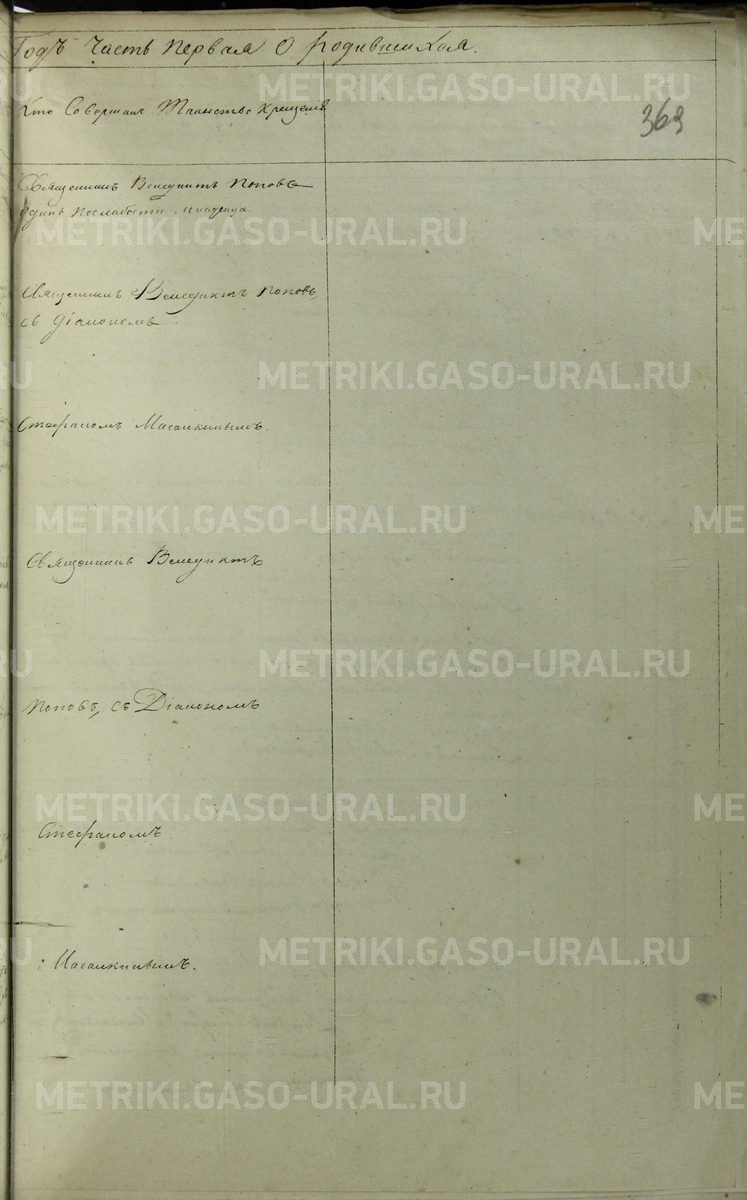 Годъ Часть Первая О родившихся.
Кто Совершал Таинство Крещенія
369
Священникъ Венедиктъ Поповъ
одинъ по слабости младенца.
Священникъ Венедиктъ Поповъ,
съ діакономъ
Стефаномъ Масалкинымъ.
Священникъ Венедиктъ
Поповъ, съ Діакономъ
Стефаномъ
Масалкинымъ.
METRIKI.GASO-URAL.RU